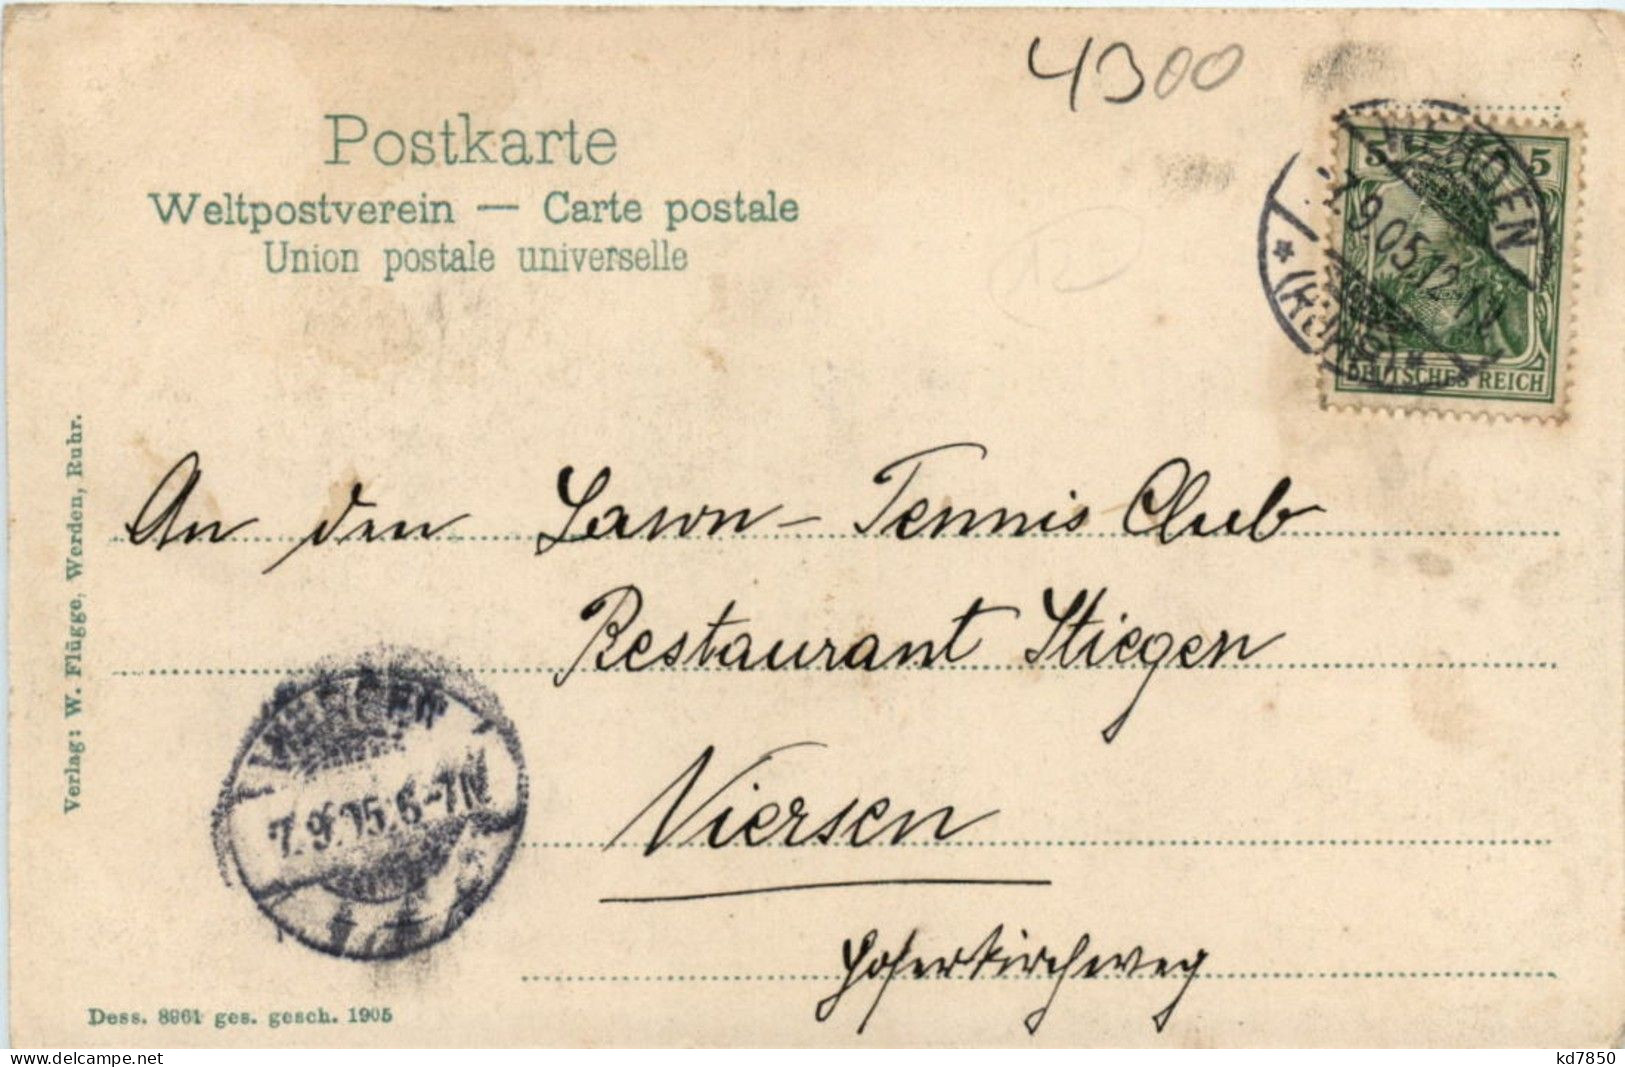 4300
Postkarte
Weltpostverein — Carte postale
Union postale universelle
5 5
WERDEN
7.9.05.12-1N
* (RUHR) *
DEUTSCHES REICH
An den Lawn-Tennis Club
Restaurant Stiegen
Viersen
VIERSEN
7.9.05.6-7N
Verlag: W. Flügge, Werden, Ruhr.
Dess. 8961 ges. gesch. 1905
delcampe.net
kd7850